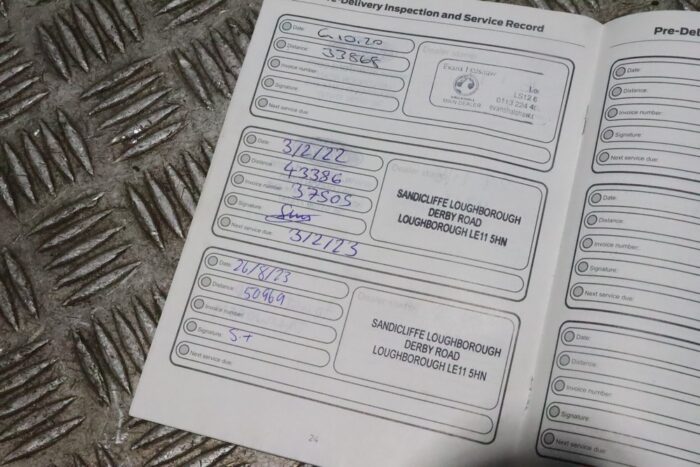 Pre-Delivery Inspection and Service Record
Date: 6.10.20
Distance: 33868
Invoice number:
Signature:
Next service due:
Dealer stamp:
Evans Halshaw
LS12 6
0113 224 4
MAIN DEALER
evanshalshaw
Date: 3/2/22
Distance: 43386
Invoice number: 37505
Signature:
Next service due: 3/2/23
Dealer stamp:
SANDICLIFFE LOUGHBOROUGH
DERBY ROAD
LOUGHBOROUGH LE11 5HN
Date: 26/8/23
Distance: 50969
Invoice number:
Signature:
Next service due:
Dealer stamp:
SANDICLIFFE LOUGHBOROUGH
DERBY ROAD
LOUGHBOROUGH LE11 5HN
24
Pre-Del
Date:
Distance:
Invoice number:
Signature:
Next service due:
Date:
Distance:
Invoice number:
Signature:
Next service due:
Date:
Distance:
Invoice number:
Signature:
Next service due: